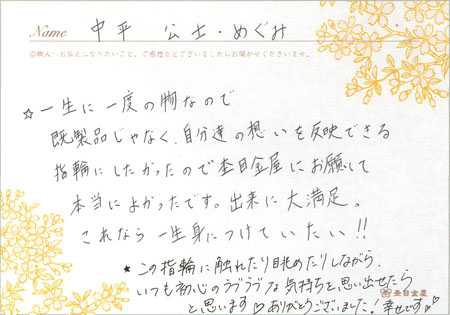 Name 中平 公士・めぐみ
◎職人へお伝えになりたいこと、ご感想などございましたらお聞かせくださいませ。
☆一生に一度の物なので
既製品じゃなく、自分達の想いを反映できる
指輪にしたかったので杢目金屋にお願いして
本当によかったです。出来に大満足。
これなら一生身につけていたい!!
★この指輪に触れたり眺めたりしながら、
いつも初心のラブラブな気持ちを思い出せたら
と思います♡ありがとうございました!幸せです♡
杢目金屋